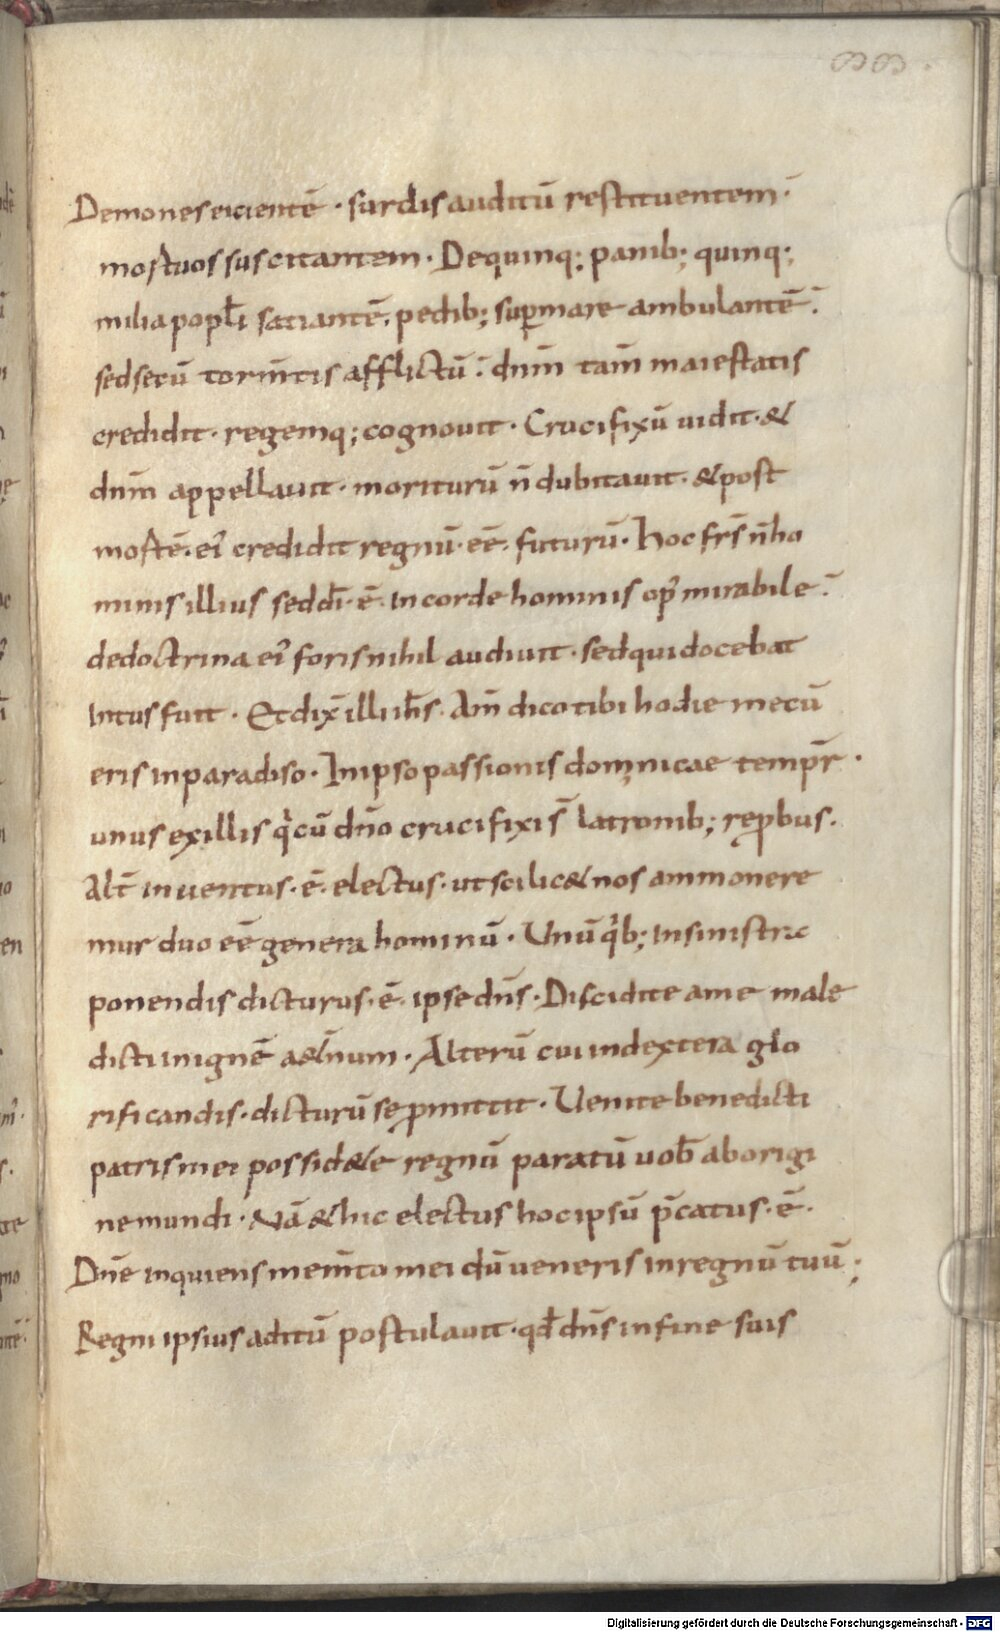 Demones eicientē · surdis auditū restituentem ·
mortuos suscitantem · De quinq; panib; quinq;
milia popłi satiantē, pedib; sup mare ambulantē ·
sed secū torm̄tis afflictū · dnm̄ tam̄ maiestatis
credidit · regemq; cognouit · Crucifixū uidit · &
dnm̄ appellauit · moriturū n̄ dubitauit · & post
mortē · ei' credidit regnū · eē · futurū · Hoc frs̄ n̄ ho
minis illius sed dī · ē · in corde hominis op' mirabile ·
de doctrina ei' foris nihil audiuit · sed qui docebat
intus fuit · Et dix̄ illi ih̄s · Am̄ dico tibi hodie mecū
eris in paradiso · In ipso passionis dominicae tempr̄ ·
unus ex illis qi cū dn̄o crucifixis̄ latronib; rep̱bus ·
Alt̄ inuentus · ē · electus · ut scilic& nos ammonere
mur duo eē genera hominū · Unū qib; in sinistra
ponendis dicturus · ē · ipse dn̄s · Discidite a me male
dicti in ignē a&n̄num · Alterū cui in dextera glo
rificandis · dicturū se p̱mittit · Uenite benedicti
patris mei possid&e regnū paratū uob̄ ab origi
ne mundi · Nā & hic electus hoc ipsū p̄catus · ē ·
Dn̄e inquiens mem̄to mei dū ueneris in regnū tuū ;
Regni ipsius aditū postulauit · qd̄ dn̄s in fine suis
Digitalisierung gefördert durch die Deutsche Forschungsgemeinschaft - DFG